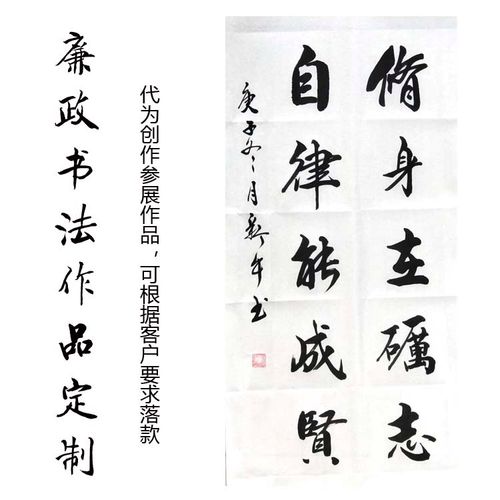 廉政书法作品定制
代为创作参展作品，可根据客户要求落款
脩身在礪志
自律能成賢
庚子冬月午书